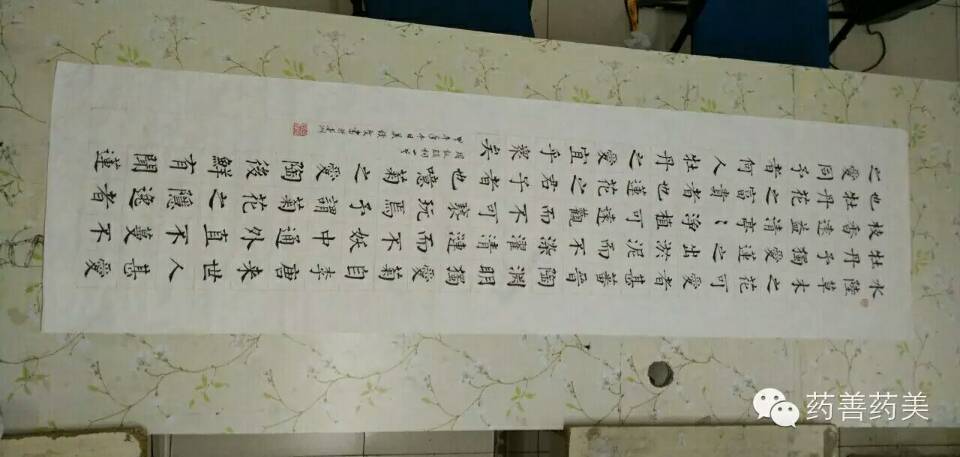 水陸草木之花可愛者甚蕃晉陶淵明獨愛菊自李唐来世人甚愛
牡丹予獨愛蓮之出淤泥而不染濯清漣而不妖中通外直不蔓不
枝香遠益清亭〻淨植可遠觀而不可褻玩焉予謂菊花之隱逸者
也牡丹花之富貴者也蓮花之君子者也噫菊之愛陶後鮮有聞蓮
之愛同予者何人牡丹之愛宜乎眾矣
药善药美